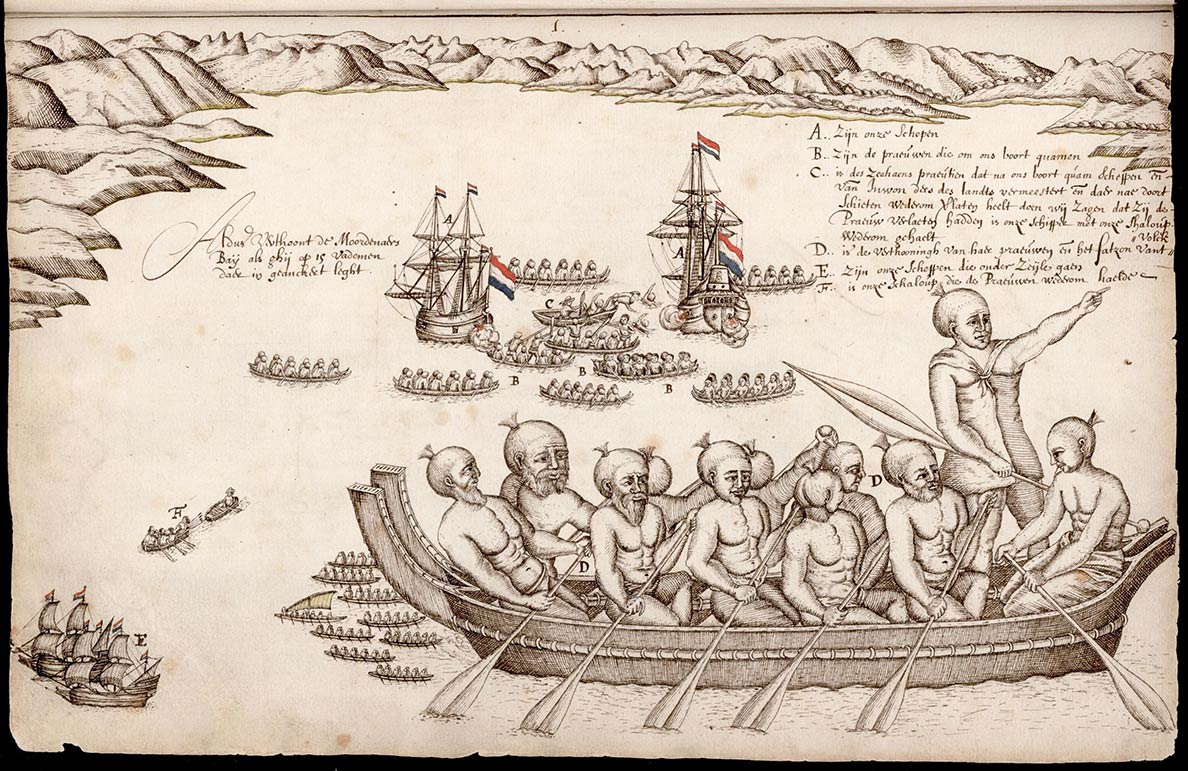 1.
A.. Zijn onze Schepen
B.. Zijn de praeuwen die om ons boort quamen
C.. is des Zeehaens praeutien dat na ons boort quam Scheppen en
van Inwon ders des landts vermeestert en daer nae door't
Schieten Wederom Verlaten heelt doen wij Zagen dat Zij de
Praeuw Verlaten hadden is onze Schipper met onze Shaloup
Wederom gehaelt
D.. is de Vethooningh van hare praeuwen en het fatzon Vant Volck
E.. Zijn onze Scheppen die onder Zeijle gaen
F.. is onze Schaloup die de Praeuwen Wederom haelde
Aldus Vethoont de Moordenaers
Baij als ghij op 15 Vademen
daer in geanckert leght.
A
A
C
B
B
B
B
D
D
F
E